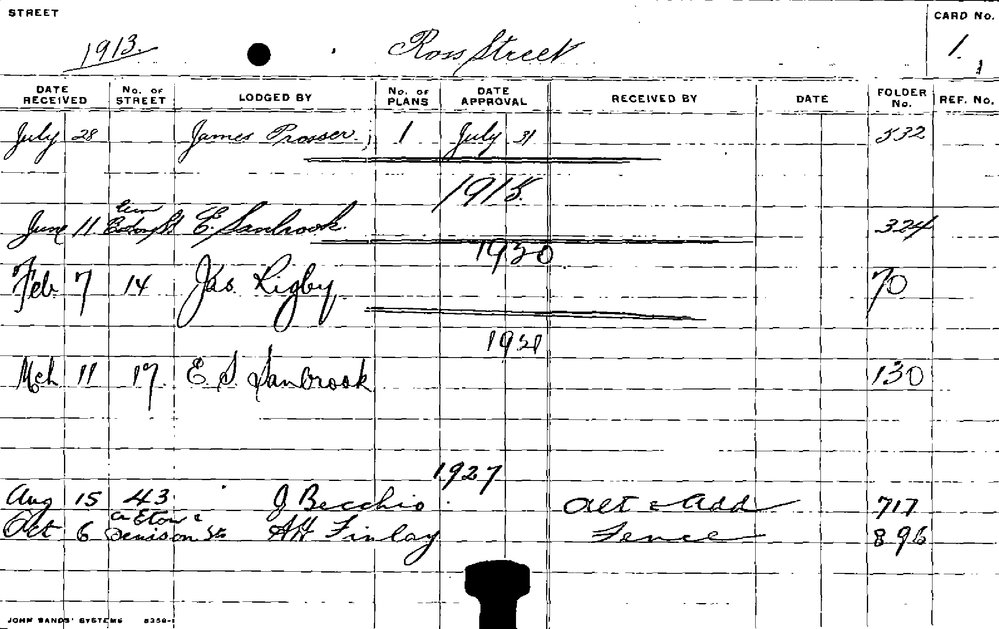 STREET
CARD No.
1913. Ross Street 1.
DATE RECEIVED No. OF STREET LODGED BY No. OF PLANS DATE APPROVAL RECEIVED BY DATE FOLDER No. REF. No.
July 28 James Prosser, 1 July 31 532
1915.
June 11 E. Sanbrook. 324
1920
Feb 7 14 Jas Rigby 70
1921
Mch 11 17 E. S. Sanbrook 130
1927
Aug 15 43 J Becchio Alt & Add 717
Oct 6 Denison St A H Finlay Fence 896
JOHN SANDS' SYSTEMS